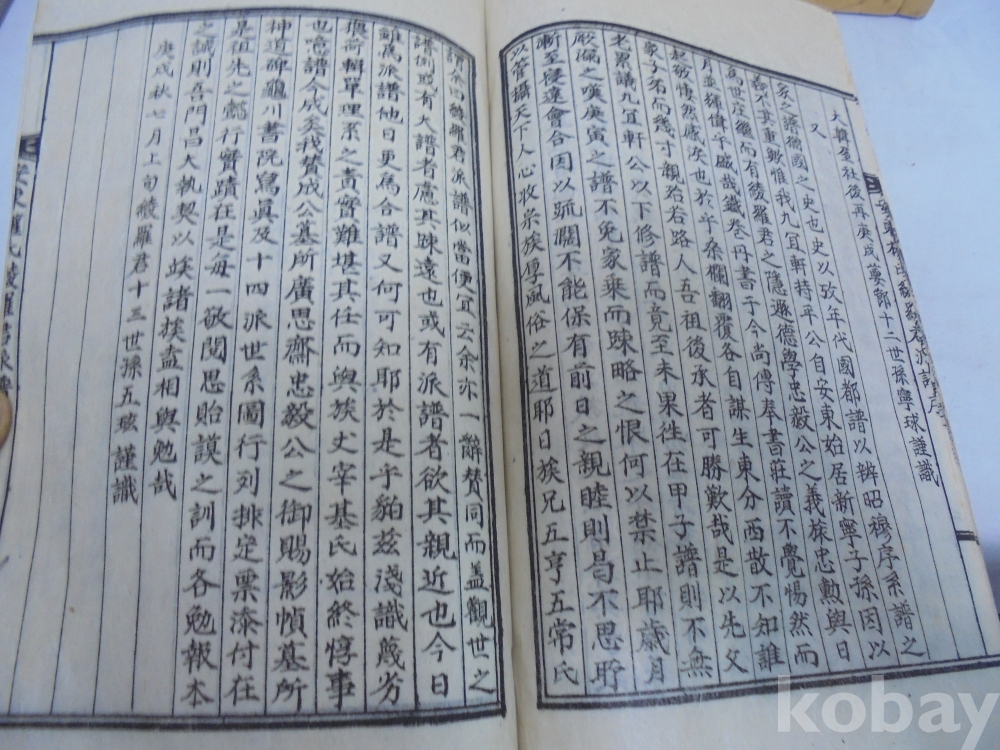 大韓至社後再庚戌蔞郭十二世孫學球謹識
又
家之譜猶國之史也史以攷年代國都譜以辨昭穆序系譜之
義不其重歟惟我九宜軒持平公自安東始居新寧子孫因以
爲世庄繼而有綾羅君之隱遯德學忠毅公之義旅忠勳與日
月並輝偉乎盛哉鐵券丹書于今尚傳奉書莊讀不覺惕然而
起敬悽然感淚也於乎桑欄翻覆各自謀生東分西散不知誰
家子弟而幾寸親殆若路人吾祖後承者可勝歎哉是以先父
老累議九宜軒公以下修譜而竟至未果徃在甲子譜則不無
厥漏之嘆庚寅之譜不免家乘而踈略之恨何以禁止耶歲月
漸至寖遠會合因以疏濶不能保有前日之親睦則曷不思所
以管攝天下人心收宗族厚風俗之道耶日族兄五亨五常氏
謂余曰綾羅君派譜似當便宜云余亦一辭賛同而盖觀世之
譜例或有大譜者慮其踈遠也或有派譜者欲其親近也今日
雖爲派譜他日更爲合譜又何可知耶於是乎貊玆淺識蔑劣
與前輯單理系之責實難堪其任而與族丈宰基氏始終惇事
也噫譜今成矣我賛成公墓所廣思齋忠毅公之御賜影幀墓所
神道碑龜川書院寫眞及十四派世系圖行列排定票漆付在
是祖先之懿行實蹟在是每一敬閱思貽謨之訓而各勉報本
之誠則吾門昌大執契以竢諸族盍相與勉哉
庚戌秋七月上旬綾羅君十三世孫五琺謹識